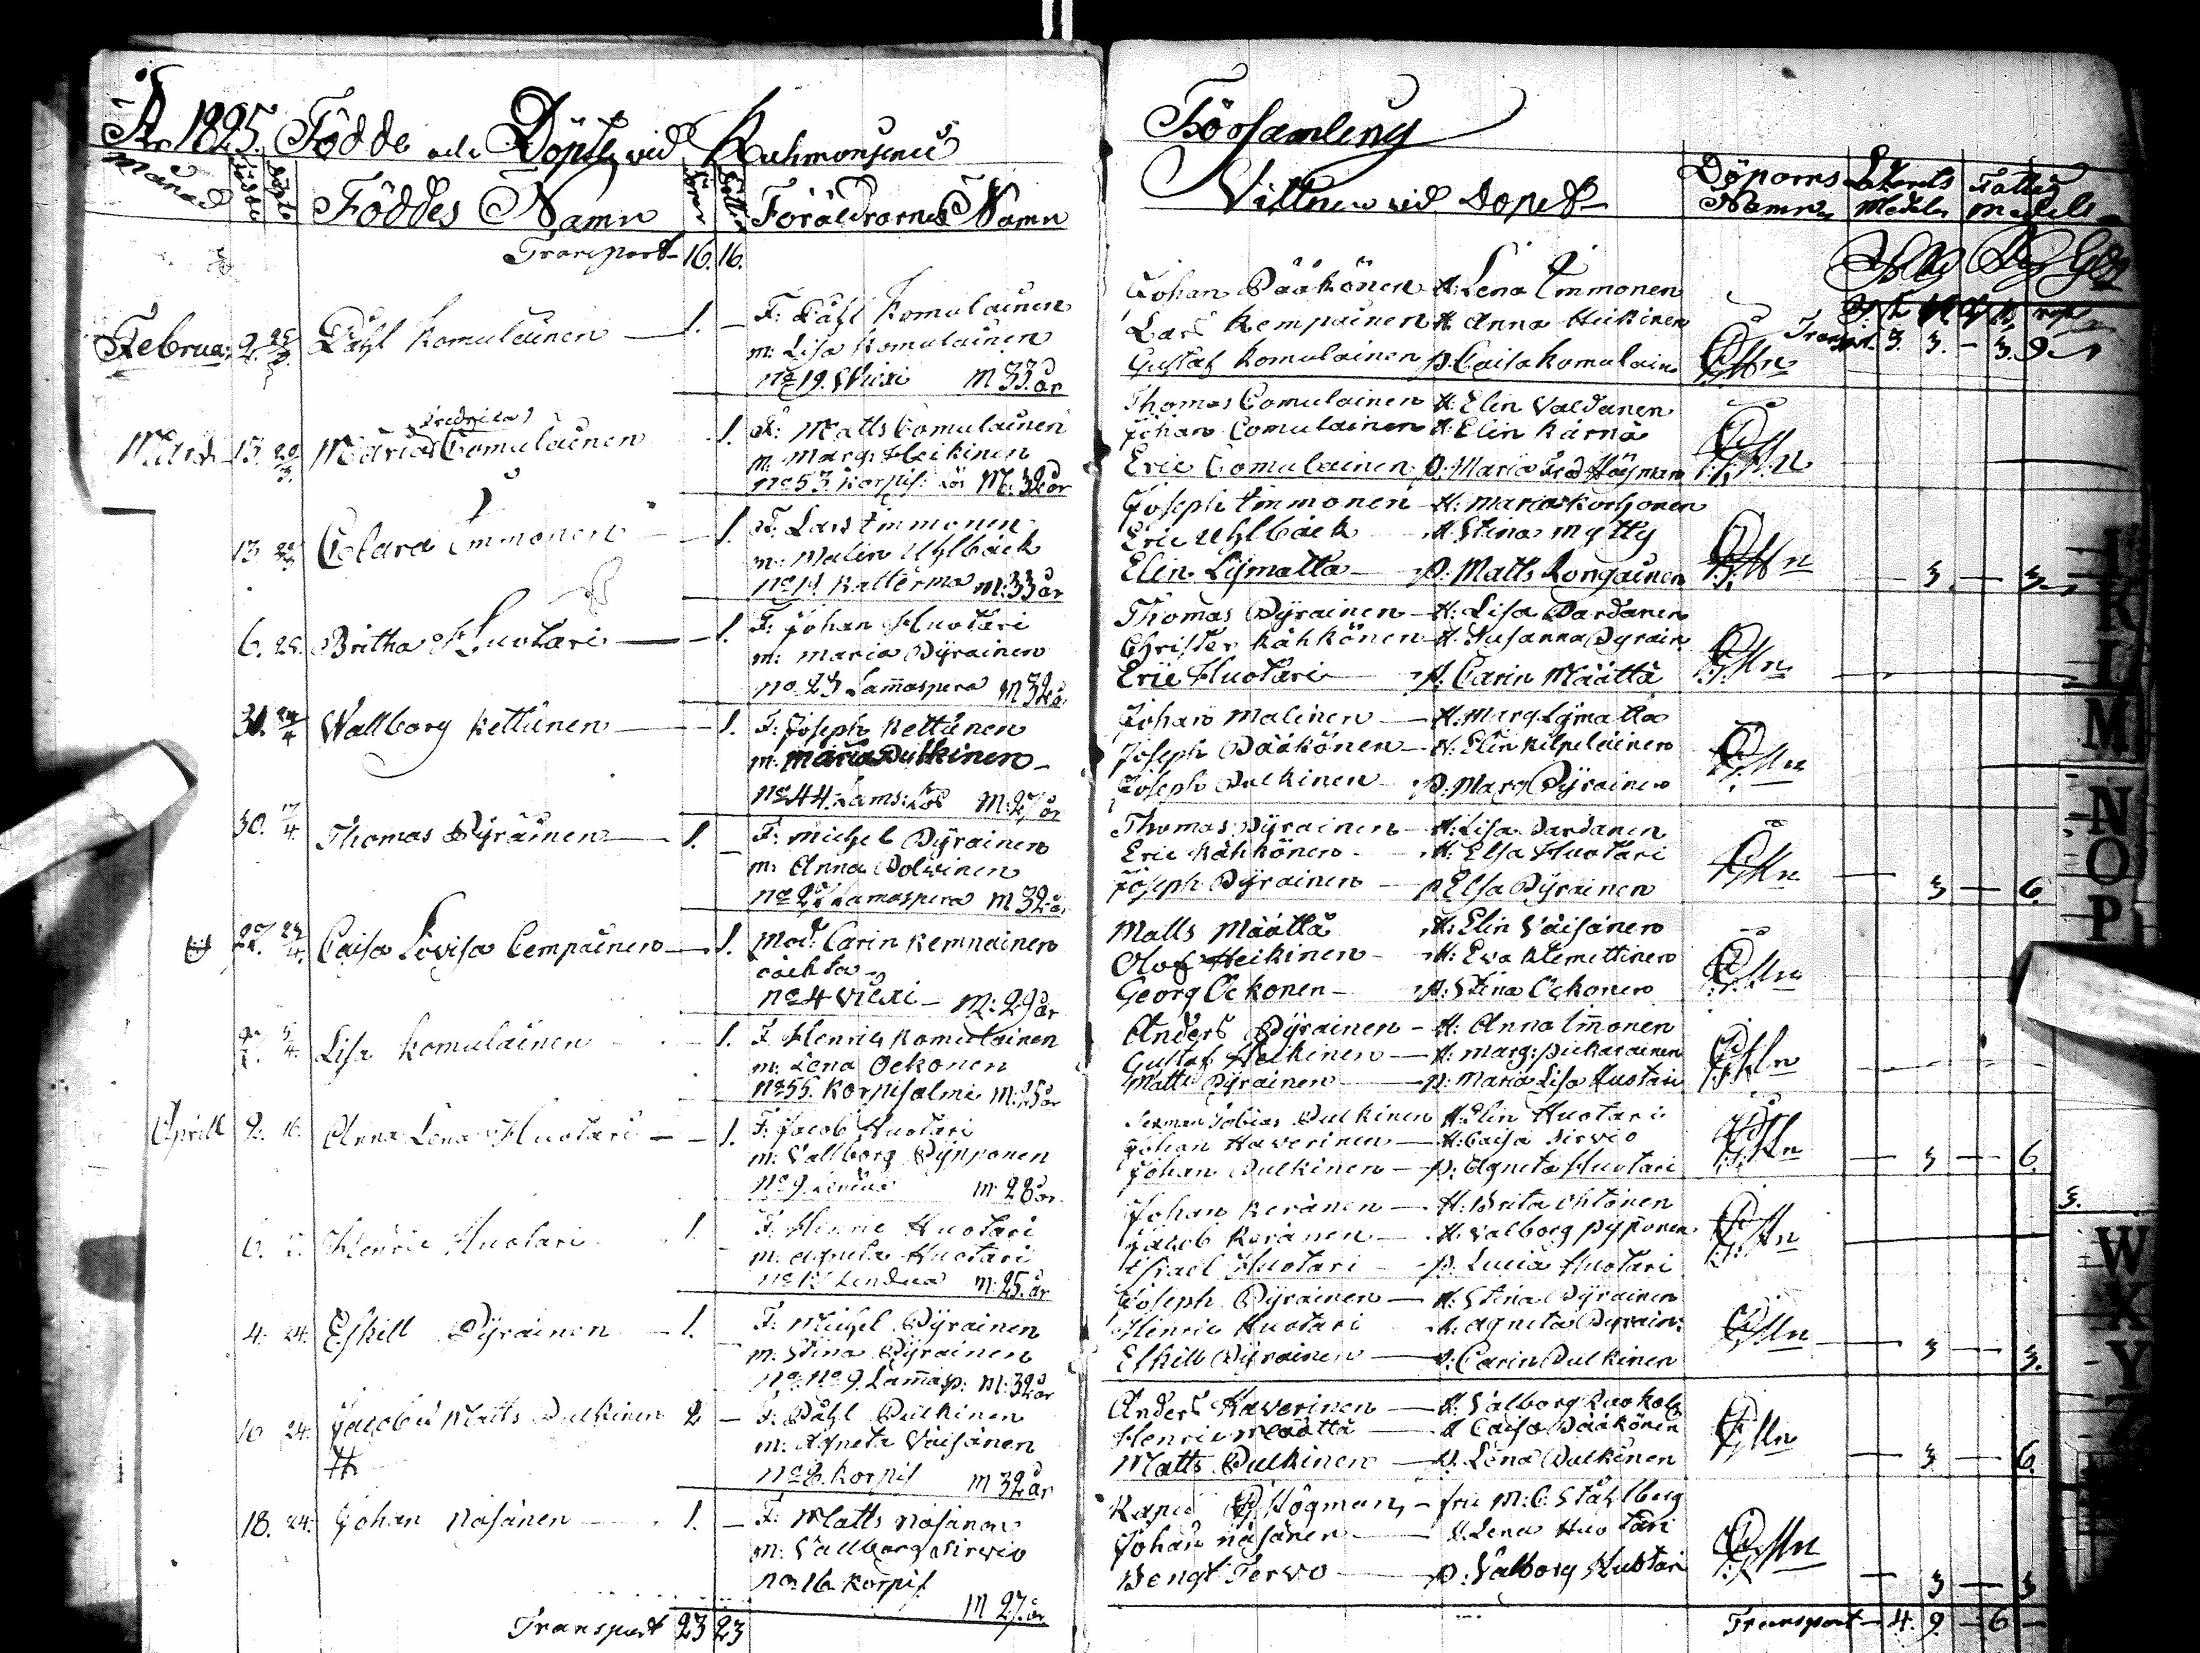 År 1825. Födde och Döpte vid Kuhmoniemi Församling
Månad Födde Döpte Föddes Namn Söner Döttr. Föräldrarnes Namn
Vittnen vid Dopet Döparens Namn Medel Fattig medel
Transport 16. 16.
Transp. 3. 3. - 3. 9.
Februar 2. Påhl Komulainen 1.
F: Påhl Komulainen
m: Lisa Komulainen
No 19. Wiexi M 33 år
Johan Pääkönen H: Lena Immonen
Lars Kempainen H: Anna Heikinen
Gustaf Komulainen p. Caisa Komulain.
Mars 13. 20/3 Maria (Fredrica) Comulainen 1.
F: Matts Comulainen
m: Marg: Heikinen
No 53. Korpis: M: 32 år
Thomas Comulainen H: Elin Valdanen
Johan Comulainen H: Elin Kärnä
Eric Comulainen p. Maria Fred Högman
13 Clara Immonen 1.
F: Lars Immonen
m: Malin Uhlbäck
No 14 Katterma m: 33 år
Joseph Immonen H: Maria Korhonen
Eric Uhlbäck H Stina Mytty
Elin Lijmatta p. Matts Kongainen
3. 3.
6. 25. Britha Huotari 1.
F: Johan Huotari
m: Maria Pyräinen
No 23 Lam̄aspera M 32 å
Thomas Pyräinen H: Lisa Pardanen
Christer Kähkönen H. Susanna Pyräin
Eric Huotari p. Carin Määttä
31. 24/4 Wallborg Kettunen 1.
F: Joseph Kettunen
m: Maria Pulkinen
No 44. Lams: M: 27 år
Johan Malinen H: Marg Lijmatta
Joseph Pääkönen H: Elin Kilpeläinen
Joseph Pulkinen p. Marg Pyräinen
30. 17/4 Thomas Pyräinen 1.
F: Michel Pyräinen
m: Anna Polvinen
No 27 Lamaspera M 32 år
Thomas Pyräinen H: Lisa Pardanen
Eric Kähkönen H: Elsa Huotari
Joseph Pyräinen p Elsa Pyräinen
3 6.
Caisa Lovisa Cempainen 1.
Mod. Carin Kemnainen
oäckta
No 4 Wiexi M: 29 år
Matts Määttä H: Elin Väisänen
Olof Heikinen H: Eva Klemettinen
Georg Ockonen p: Stina Ockonen
Lisa Komulainen 1.
F. Henric Komulainen
m: Lena Ockonen
No 55. Korpisalmi M: 25 år
Anders Pyräinen H: Anna Im̄onen
Gustaf Heikinen H: Marg: Pickarainen
Matts Pyräinen p: Maria Lisa Huotari
Aprill 9. 16. Anna Lena Huotari 1.
F: Jacob Huotari
m: Vallborg Pynnonen
No 9. M: 28 år
Tobias Pulkinen H. Elin Huotari
Johan Haverinen H: Caisa Sirvio
Johan Pulkinen p. Agneta Huotari
3 6.
6. Henric Huotari 1.
F: Henric Huotari
m. Agneta Huotari
M: 25. år
Johan Keränen H: Brita Ohtonen
Jacob Keränen H. Valborg Pyponen
Israel Huotari p. Lucia Huotari
4. 24. Eskill Pyräinen 1.
F: Michel Pyräinen
m: Stina Pyräinen
No 9. Lam̄asp: M: 32 år
Joseph Pyräinen H: Stina Pyräinen
Henric Huotari H. Agneta Pyräin:
Eskill Pyräinen p: Carin Pulkinen
3 3.
10 24. Jacob & Matts Pulkinen 2
F: Påhl Pulkinen
m: Agneta Väisänen
No 8. Korpis M 32 år
Anders Haverinen H. Valborg
Henric Määttä H Caisa Pääkönen
Matts Pulkinen p. Lena Pulkinen
3 6.
18. 24. Johan Näsänen 1.
F: Matts Näsänen
m: Vallborg Sirvio
No 16. Korpis
M 27. år
Högman, fru M: C. Ståhlberg
Johan Näsänen H. Lena Huotari
Bengt Tervo p: Valborg Huotari
3 3
Transport 23 23
Transport 4. 9. 6
K
L
M
N
O
P
W
X
Y